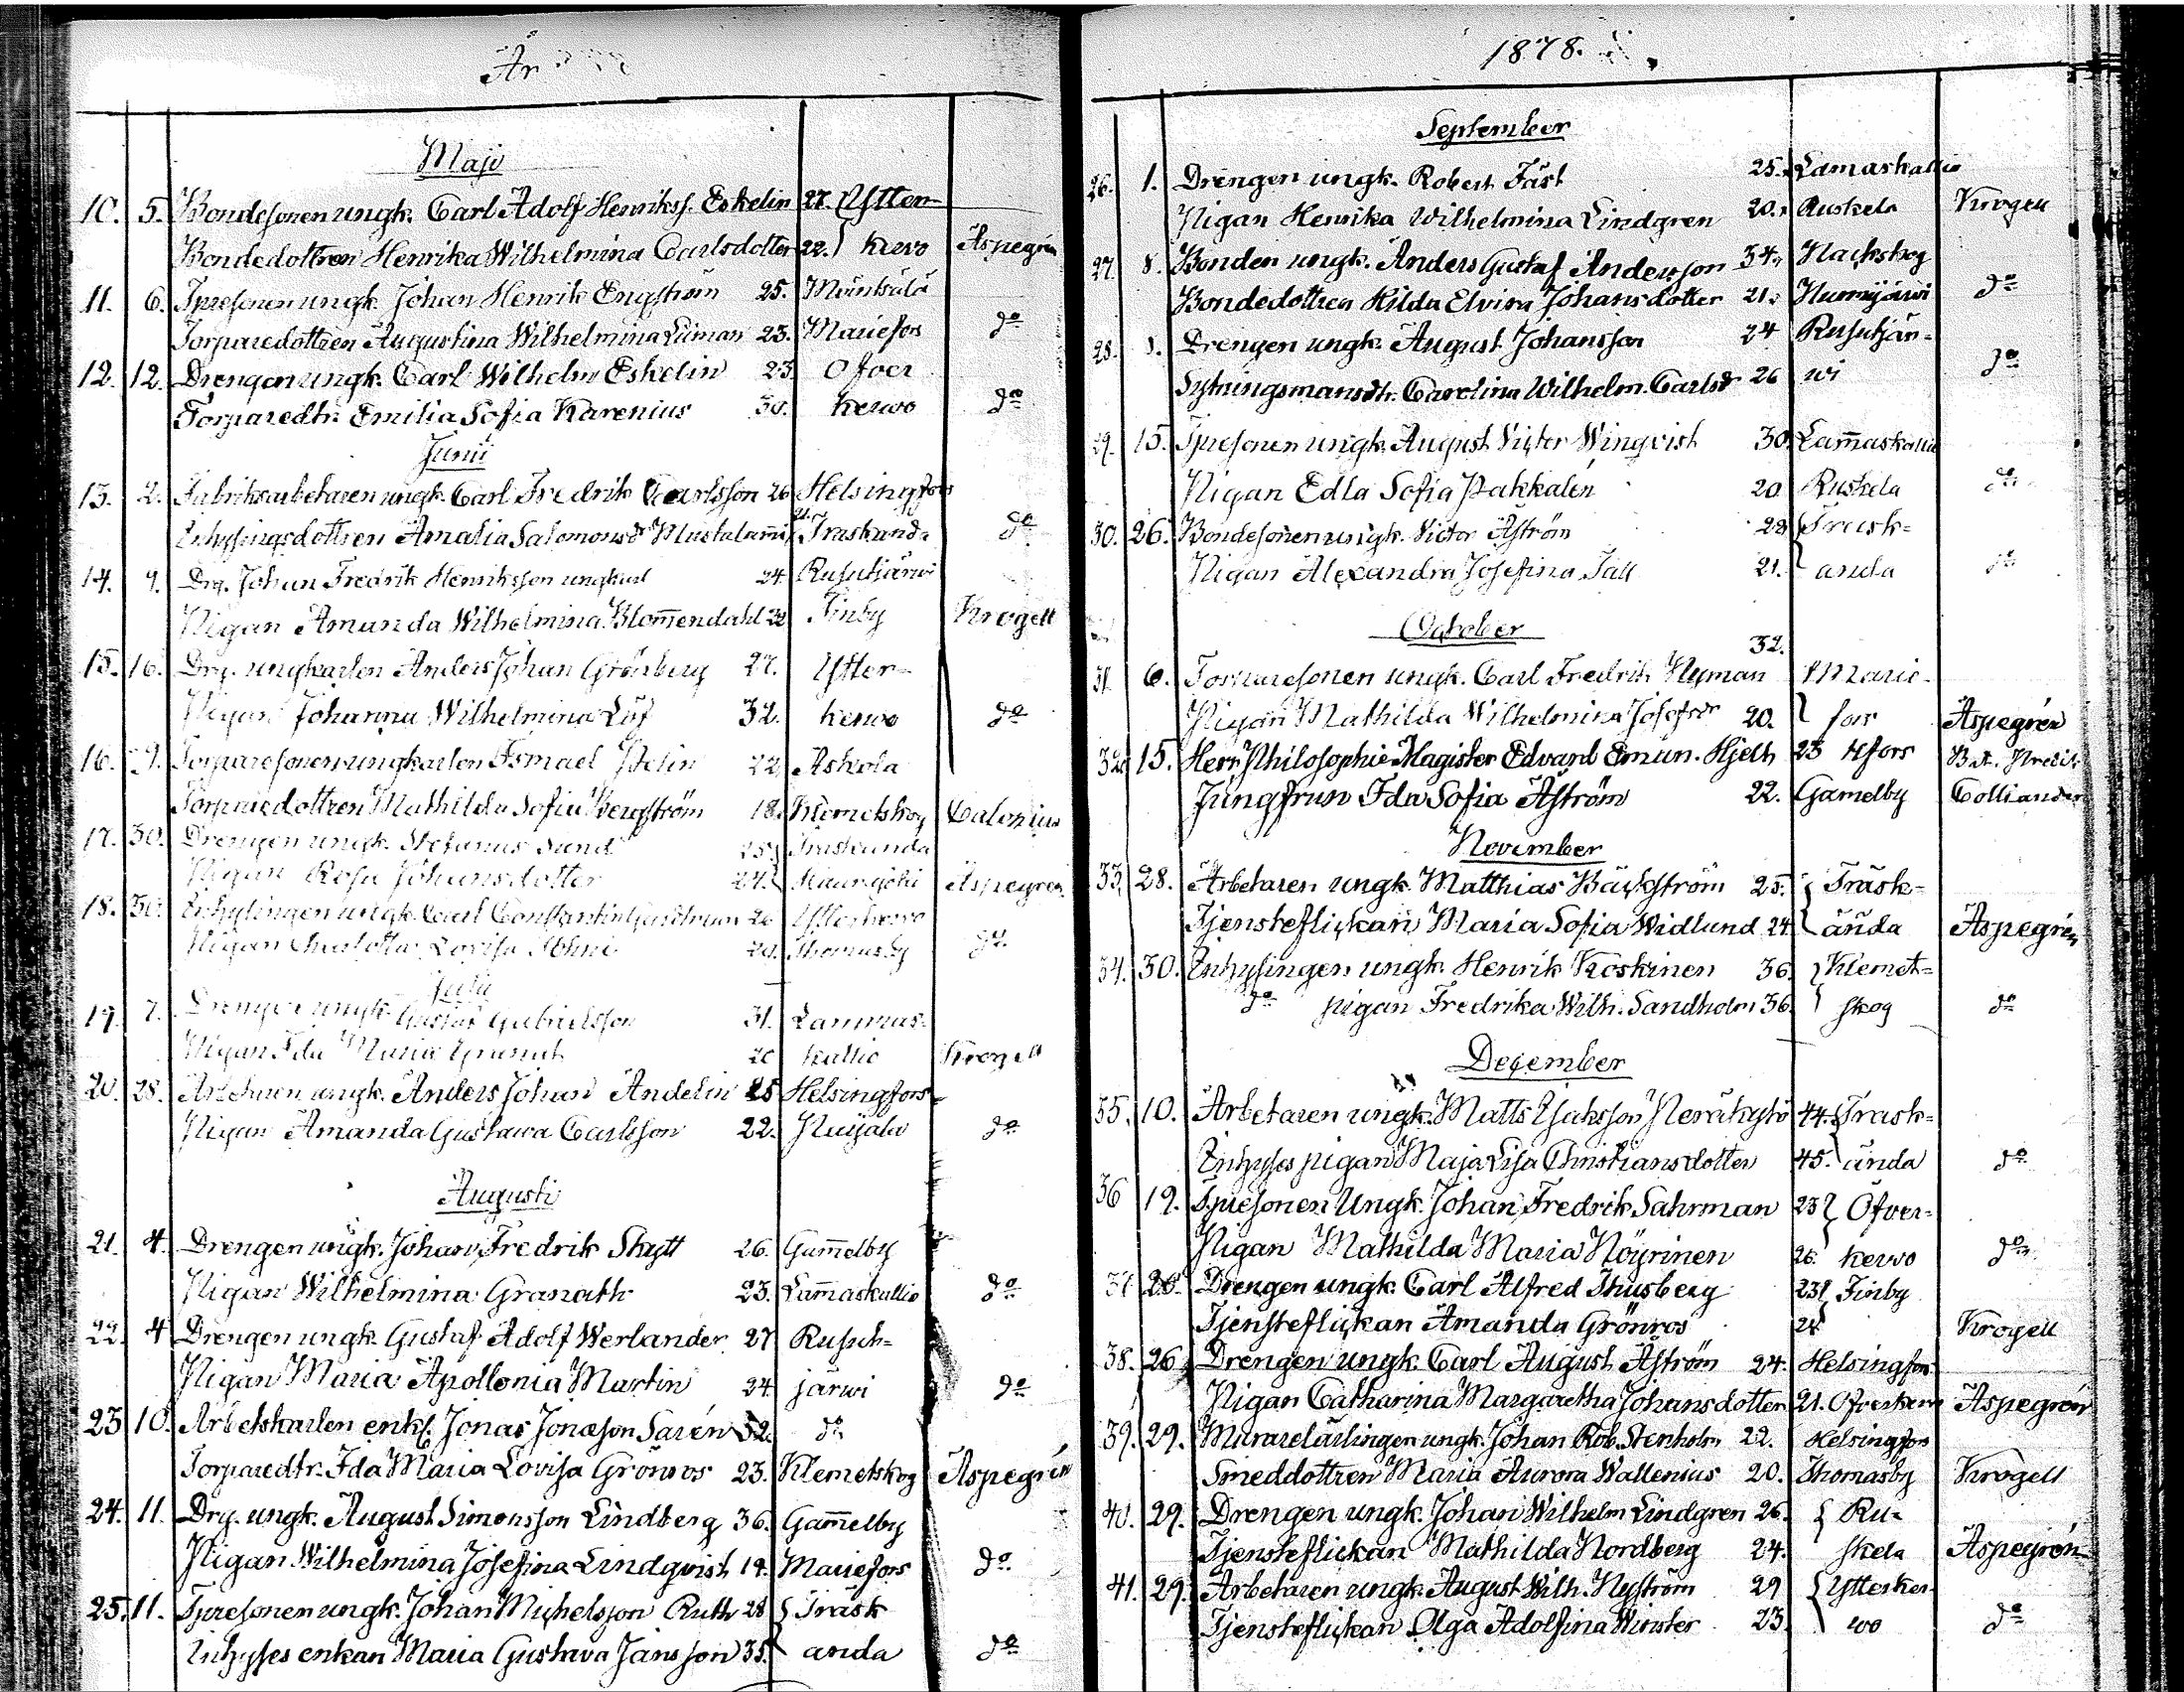 År
Maji
10. 5. Bondesonen ungk. Carl Adolf Henrikss. Eskelin 27. Ytter-
Bondedottren Henrika Wilhelmina Carlsdotter 22. kerwo Aspegrén
11. 6. Tpresonen ungk. Johan Henrik Engström 25. Mäntsälä
Torparedottren Augustina Wilhelmina Liman 23. Mariefors do
12. 12. Drengen ungk. Carl Wilhelm Eskelin 23. Ofver
Torparedtr. Emilia Sofia Karenius 30. kerwo do
Junii
13. 2. Fabriksarbetaren ungk. Carl Fredrik Carlsson 26 Helsingfors
Inhysingsdottren Amalia Salomonsdr Mustalam̄i 21. Träskanda do
14. 9. Drg. Johan Fredrik Henriksson ungkarl 24. Rusutjärwi
Pigan Amanda Wilhelmina Blom̄endahl 22 Finby Krogell
15. 16. Drg. ungkarlen Anders Johan Grönberg 27. Ytter-
Pigan Johanna Wilhelmina Löf 32. kerwo do
16. 9. Torparesonen ungkarlen Ismael Pelin 22. Askola
Torparedottren Mathilda Sofia Bergström 18. Klemetskog Calonius
17. 30. Drengen ungk. Stefanus Sund 25. Träskanda
Pigan Rosa Johansdotter 24. Aspegrén
18. 30. Inhysingen ungk. Carl Constantin 26 Ytterkerwo
Pigan Charlotta Lovisa 20. Thomasby do
Julii
19. 7. Drengen ungk. Gustaf Gabrielsson 31. Lammas-
Pigan Ida Maria Granat 20 kallio Krogell
20. 28. Arbetaren ungk. Anders Johan Andelin 25 Helsingfors
Pigan Amanda Gustawa Carlsson 22. Paijala do
Augusti
21. 4. Drengen ungk. Johan Fredrik Skytt 26. Gam̄elby
Pigan Wilhelmina Granath 23. Lam̄askallio do
22. 4 Drengen ungk. Gustaf Adolf Werlander 27 Rusut-
Pigan Maria Apollonia Martin 24. järwi do
23 10. Arbetskarlen enkl. Jonas Jonasson Sarén 52. do
Torparedtr. Ida Maria Lovisa Grönros 23. Klemetskog Aspegrén
24. 11. Drg. ungk. August Simonsson Lindberg 36. Gam̄elby
Pigan Wilhelmina Josefina Lindqvist 19. Mariefors do
25. 11. Tpresonen ungk. Johan Michelsson Ruth 28 Träsk
Inhyses enkan Maria Gustava Jansson 35. anda do
1878.
September
26. 1. Drengen ungk. Robert Fäst 25. Lamaskallio
Pigan Henrika Wilhelmina Lindgren 20. Ruskela Krogell
27. 8. Bonden ungk. Anders Gustaf Andersson 34. Nackskog
Bondedottren Hilda Elvira Johansdotter 21. Numijärwi do
28. 8. Drengen ungk. August Johansson 24 Rusutjär-
Sytningsmansdtr. Carolina Wilhelm. Carlsdr 26 wi do
29. 15. Tpresonen ungk. August Victor Winqvist 30. Lam̄askallio
Pigan Edla Sofia Pakkalén 20 Ruskela do
30. 26. Bondesonen ungk. Victor Åström 28 Träsk-
Pigan Alexandra Josefina Fäll 21. anda do
October
31. 6. Torparesonen ungk. Carl Fredrik Nyman 32. Marie-
Pigan Mathilda Wilhelmina Josefsdr 20. fors Aspegrén
32. 15. Herr Philosophie Magister Edvard Eman. Hjelt 23 Hfors Bat. Predik.
Jungfrun Ida Sofia Åström 22. Gamelby Colliander
November
33. 28. Arbetaren ungk. Matthias Bäckström 25. Träsk-
Tjensteflickan Maria Sofia Widlund 24. ända Aspegrén
34. 30. Inhysingen ungk. Henrik Koskinen 36. Klemet-
do pigan Fredrika Wilh. Sandholm 36. skog do
December
35. 10. Arbetaren ungk. Matts Isaksson Peräkylö 44. Träsk-
Inhyses pigan Maja Lisa Christiansdotter 45. ända do
36 19. Tpresonen Ungk. Johan Fredrik Sahrman 23 Öfver-
Pigan Mathilda Maria Nöyrinen 26. kerwo do
37 26. Drengen ungk. Carl Alfred Thusberg 23 Finby
Tjensteflickan Amanda Grönros 24 Krogell
38. 26 Drengen ungk. Carl August Åström 24. Helsingfors
Pigan Catharina Margaretha Johansdotter 21. Ofverkerwo Aspegrén
39. 29. Murarelärlingen ungk. Johan Rob. Stenholm 22. Helsingfors
Smeddottren Maria Aurora Wallenius 20. Thomasby Krogell
40. 29. Drengen ungk. Johan Wilhelm Lindgren 26. Ru-
Tjensteflickan Mathilda Nordberg 24. skela Aspegrén
41. 29. Arbetaren ungk. August Wilh. Nyström 29 Ytterker-
Tjensteflickan Olga Adolfina Winster 23. wo do